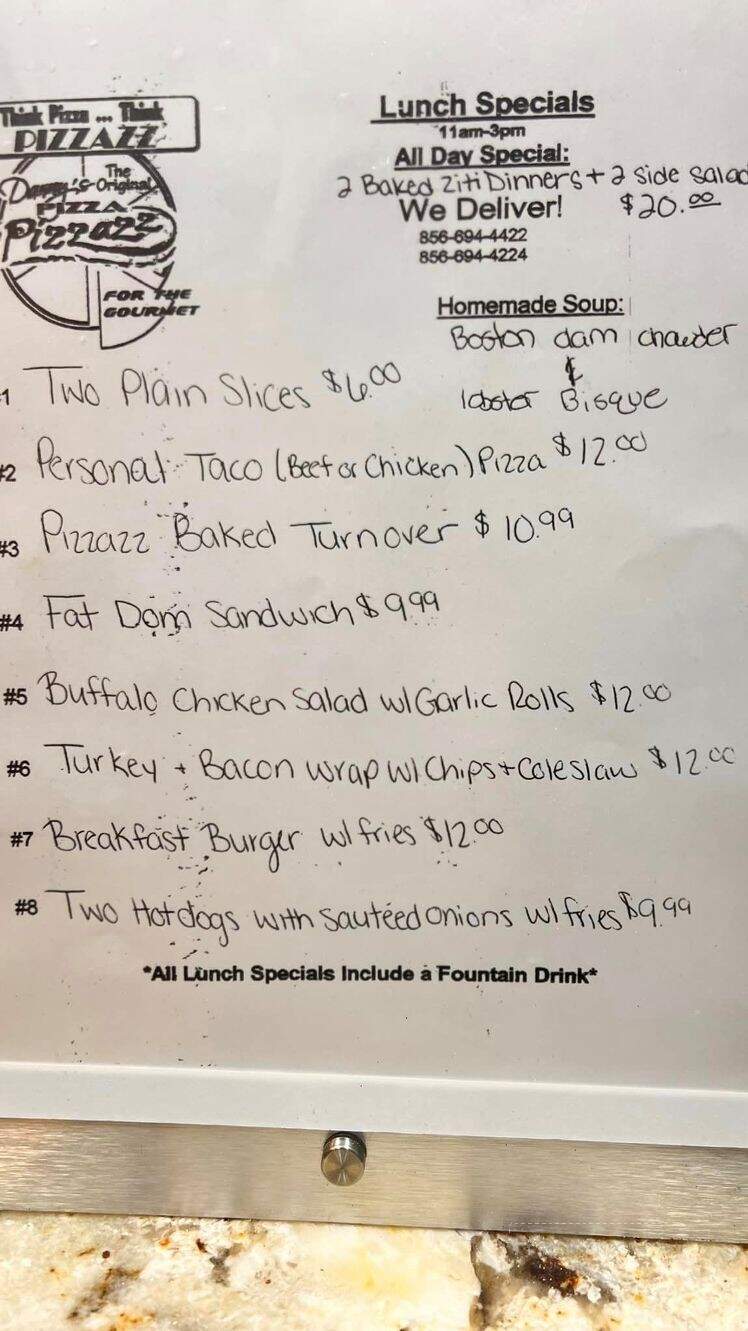 Think Pizza ... Think
PIZZAZZ
The
Danny's Original
PIZZA
Pizzazz
FOR THE
GOURMET
Lunch Specials
11am-3pm
All Day Special:
2 Baked Ziti Dinners + 2 side salad
We Deliver! $20.00
856-694-4422
856-694-4224
Homemade Soup:
Boston clam chowder
&
lobster Bisque
#1 Two Plain Slices $6.00
#2 Personal Taco (Beef or Chicken) Pizza $12.00
#3 Pizzazz Baked Turnover $10.99
#4 Fat Dom Sandwich $9.99
#5 Buffalo Chicken Salad w/Garlic Rolls $12.00
#6 Turkey + Bacon wrap w/ Chips + Coleslaw $12.00
#7 Breakfast Burger w/ fries $12.00
#8 Two Hotdogs with sautéed onions w/ fries $9.99
*All Lunch Specials Include a Fountain Drink*